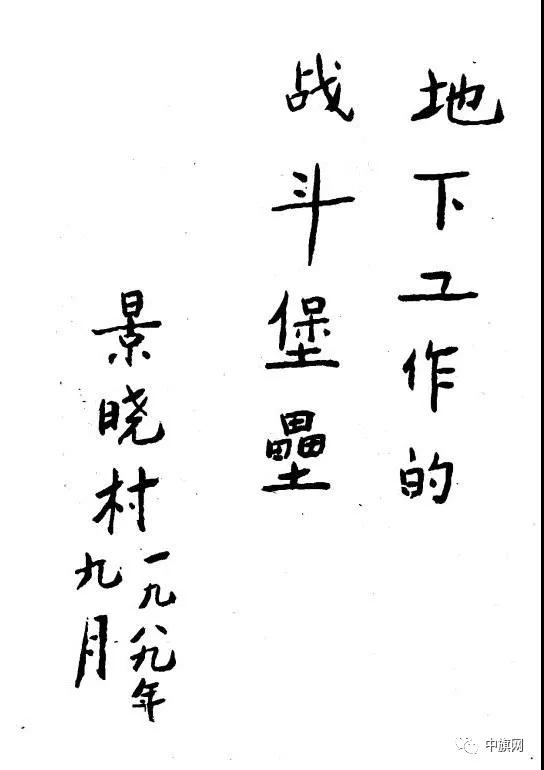 地下工作的
战斗堡壘
景晓村
一九八九年
九月
中旗网